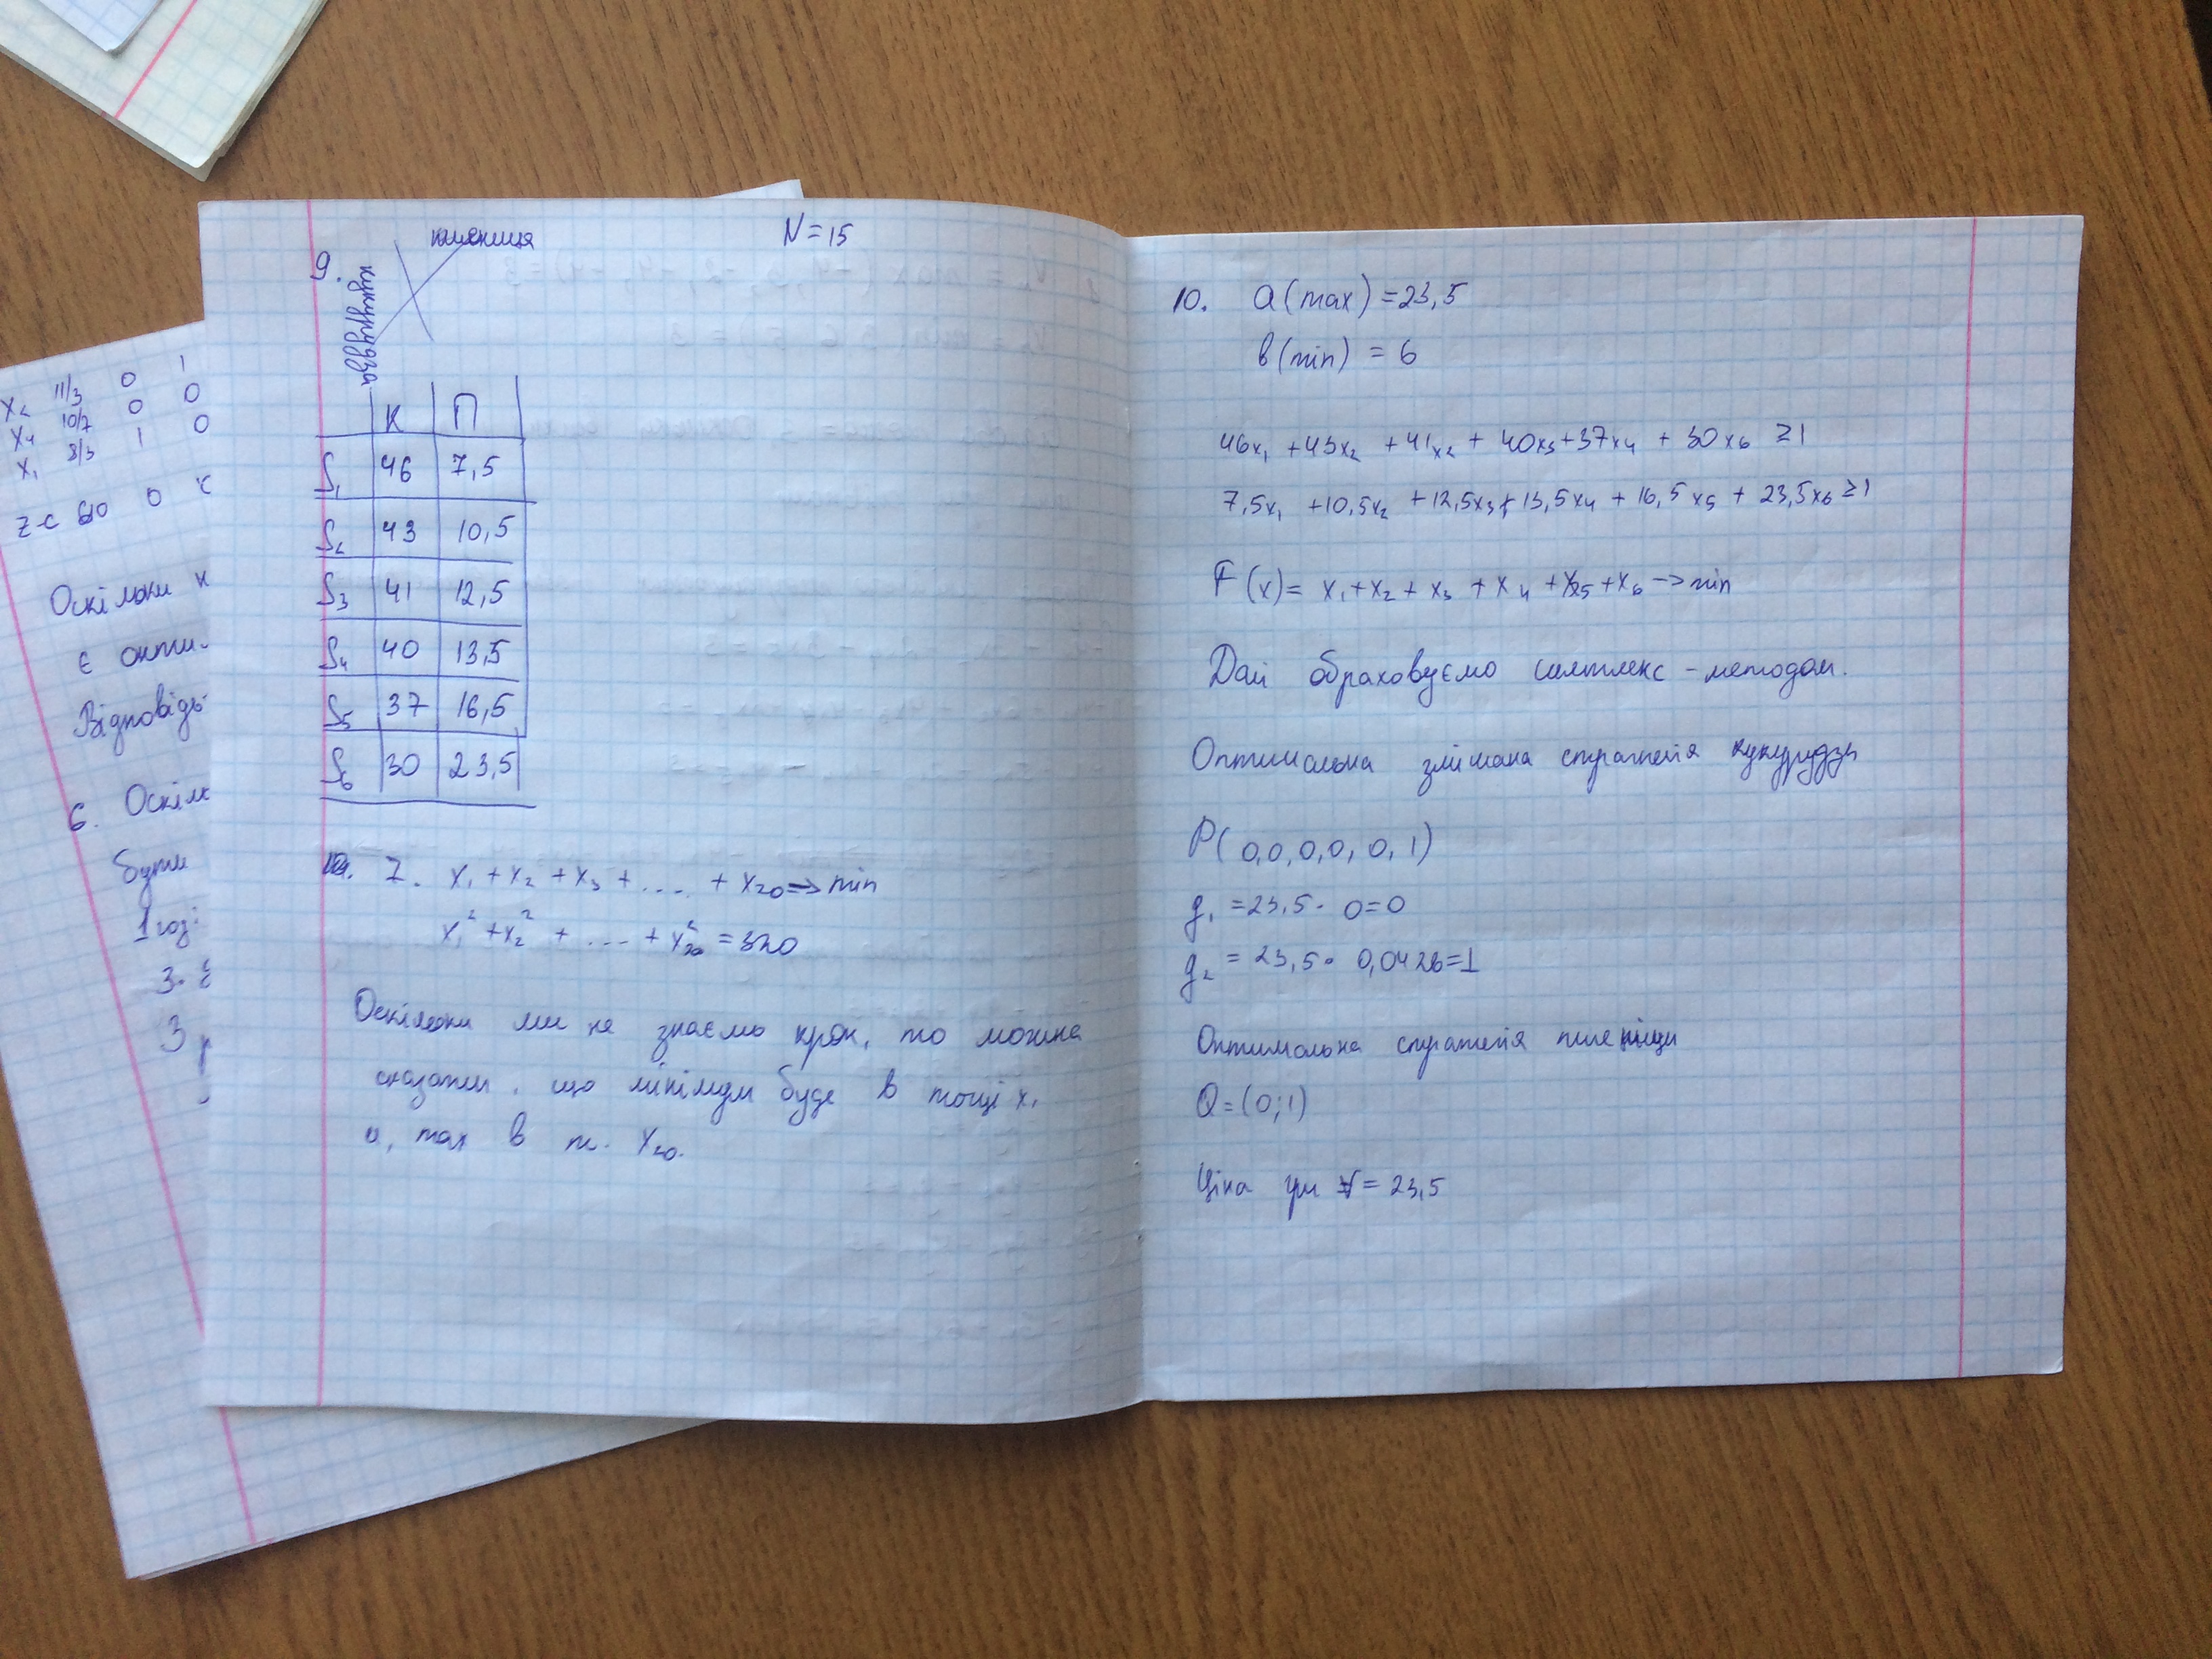 X₂ 11/3 0 1
X₄ 10/7 0 0
X₁ 8/3 1 0
Z-C 0
Оскільки
є опти-
Відповідь:
6.
бути
1 год:
3
N=15
9.
пшениця
кукурудза
К П
S₁ 46 7,5
S₂ 43 10,5
S₃ 41 12,5
S₄ 40 13,5
S₅ 37 16,5
S₆ 30 23,5
7. x₁ + x₂ + x₃ + .... + x₂₀ => min
x₁² + x₂² + .... + x₂₀² = 320
Оскільки ми не знаємо крок, то можна
сказати, що мінімум буде в точці x₁
а, max в т. x₂₀.
10. a(max) = 23,5
b(min) = 6
46x₁ + 43x₂ + 41x₂ + 40x₃ + 37x₄ + 30x₆ ≥ 1
7,5x₁ + 10,5x₂ + 12,5x₃ + 13,5x₄ + 16,5x₅ + 23,5x₆ ≥ 1
F(x) = x₁ + x₂ + x₃ + x₄ + x₅ + x₆ -> min
Далі обраховуємо симплекс-методом.
Оптимальна змішана стратегія кукурудзи
P(0,0,0,0,0,1)
g₁ = 23,5 · 0=0
g₂ = 23,5 · 0,0426=1
Оптимальна стратегія пшениці
Q=(0;1)
Ціна гри V = 23,5